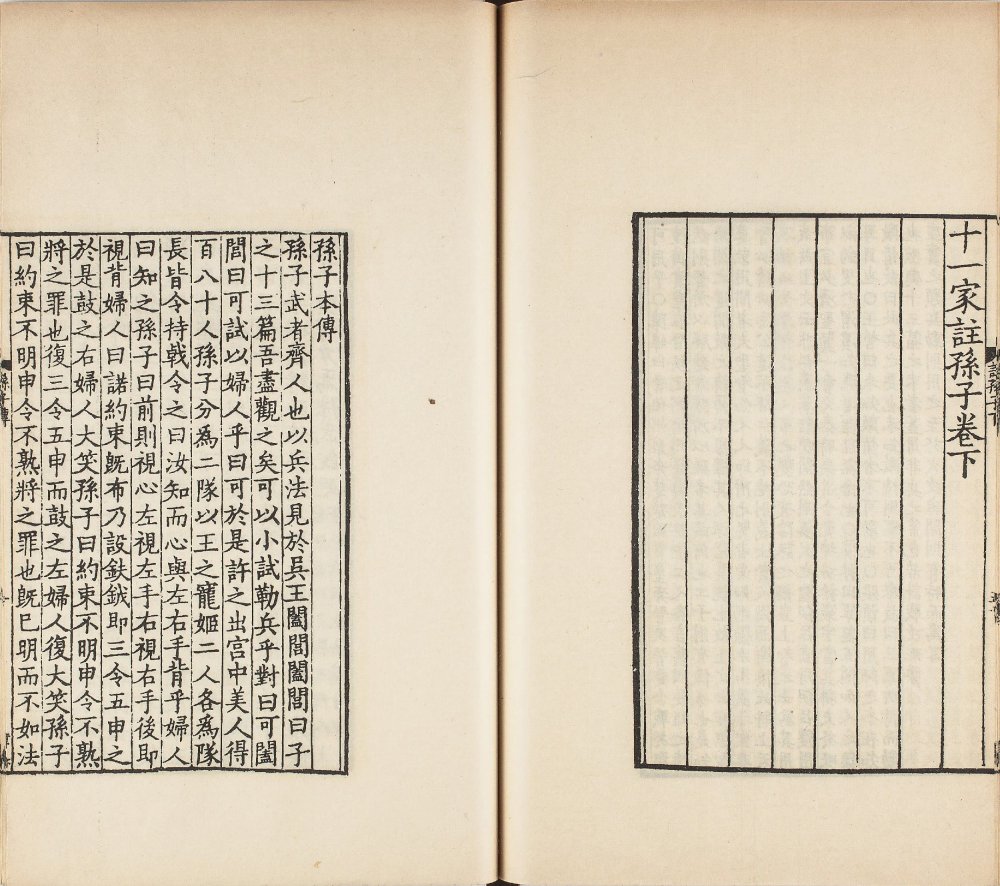 十一家註孫子卷下
孫子本傳
孫子武者齊人也以兵法見於吳王闔閭闔閭曰子
之十三篇吾盡觀之矣可以小試勒兵乎對曰可闔
閭曰可試以婦人乎曰可於是許之出宮中美人得
百八十人孫子分爲二隊以王之寵姬二人各爲隊
長皆令持戟令之曰汝知而心與左右手背乎婦人
曰知之孫子曰前則視心左視左手右視右手後即
視背婦人曰諾約束既布乃設鈇鉞即三令五申之
於是鼓之右婦人大笑孫子曰約束不明申令不熟
將之罪也復三令五申而鼓之左婦人復大笑孫子
曰約束不明申令不熟將之罪也既已明而不如法